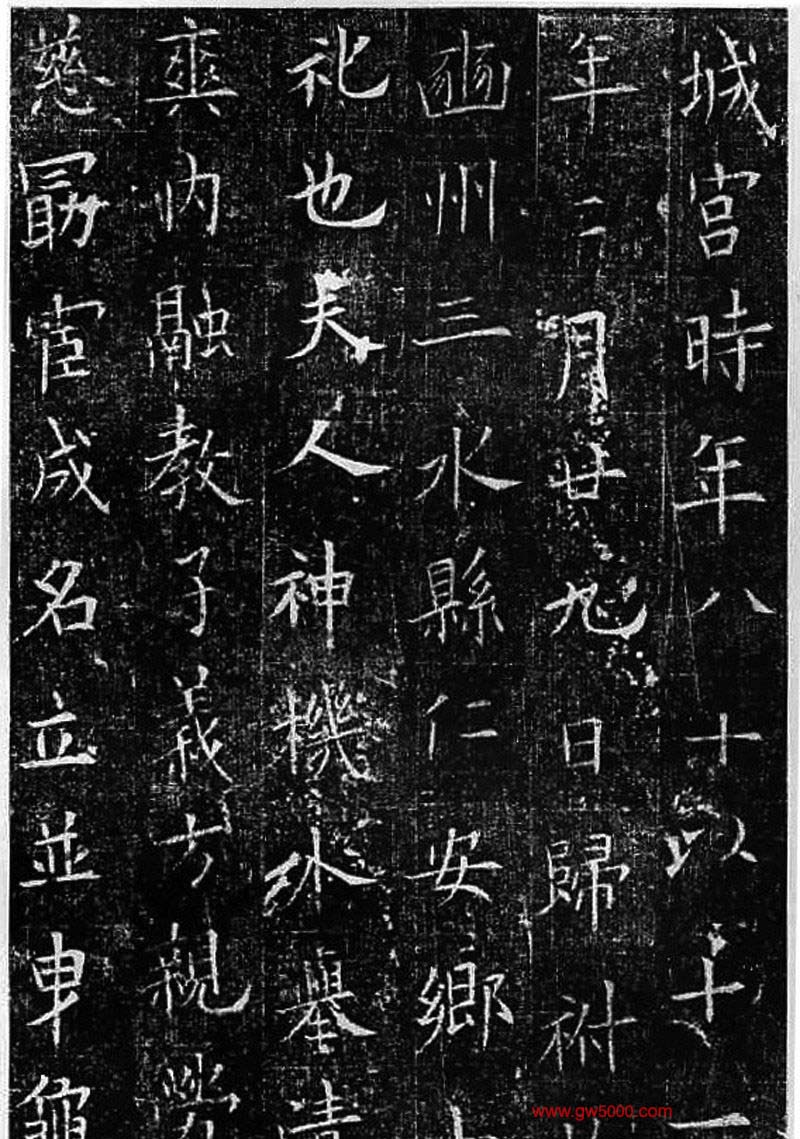 城宮時年八十以十一
年二月廿九日歸祔
豳州三水縣仁安鄉
礼也夫人神機外清
爽内融教子義方親勞
慈勗宦成名立並龜
www.gw5000.com